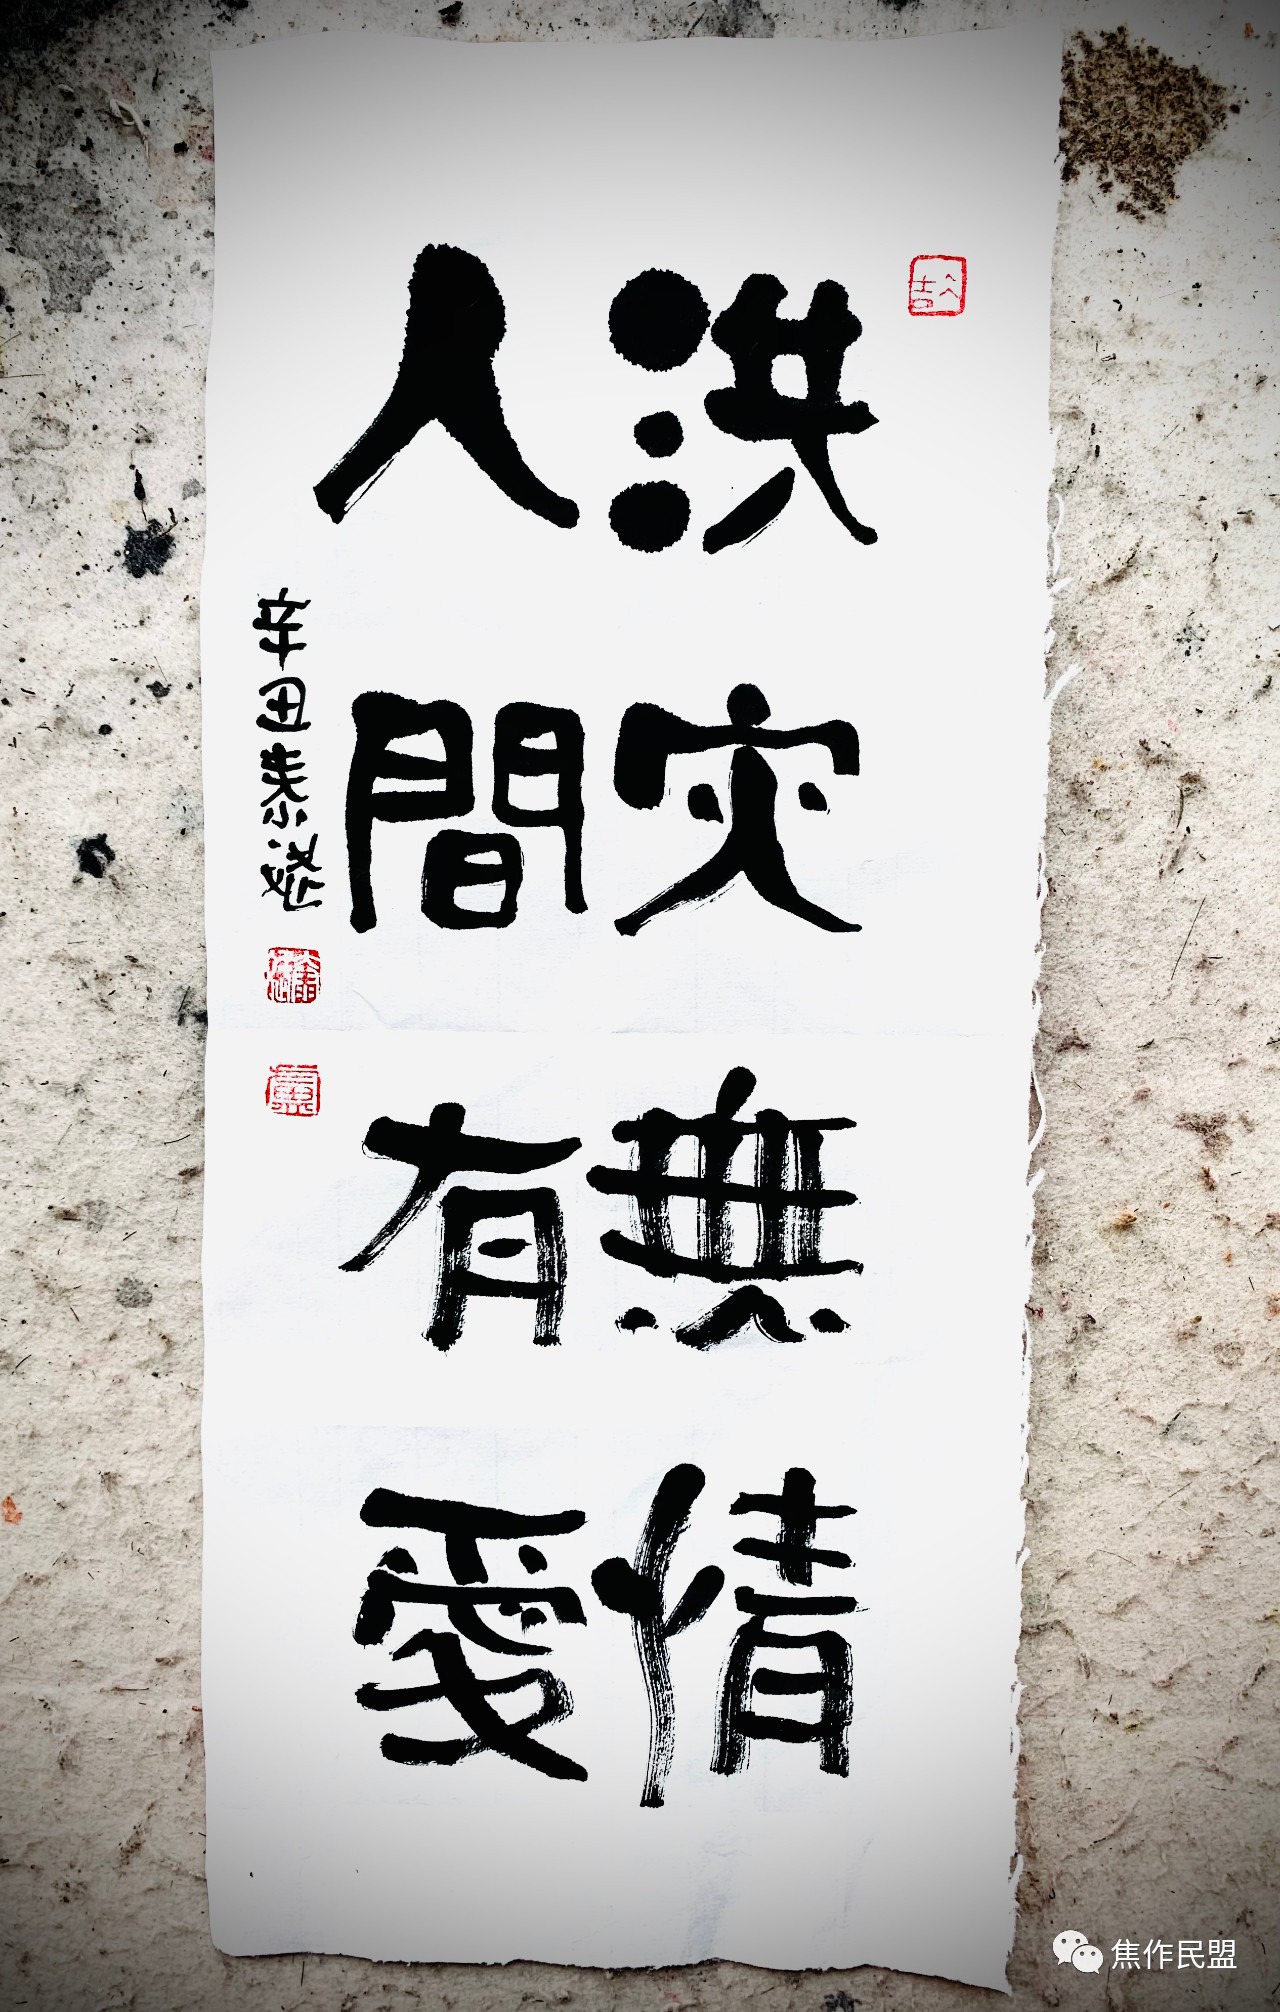 洪灾無情
人間有愛
辛丑
焦作民盟